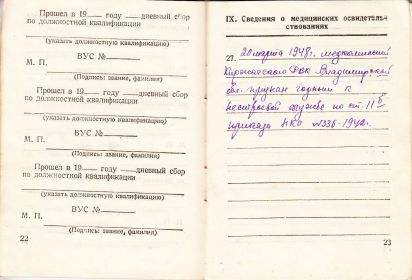 Прошел в 19 —— году ——дневный сбор
по должностной квалификации
(указать должностную квалификацию)
ВУС №
М. П.
(Подпись: звание, фамилия)
Прошел в 19 —— году ——дневный сбор
по должностной квалификации
(указать должностную квалификацию)
ВУС №
М. П.
(Подпись: звание, фамилия)
Прошел в 19 —— году ——дневный сбор
по должностной квалификации
(указать должностную квалификацию)
ВУС №
М. П.
(Подпись: звание, фамилия)
22
IX. Сведения о медицинских освидетель-
ствованиях
27. 20 марта 1948г. медкомиссией
РВК Владимирской
обл. признан годным к
нестроевой службе по ст. 11
приказа НКО №336-1942г.
23